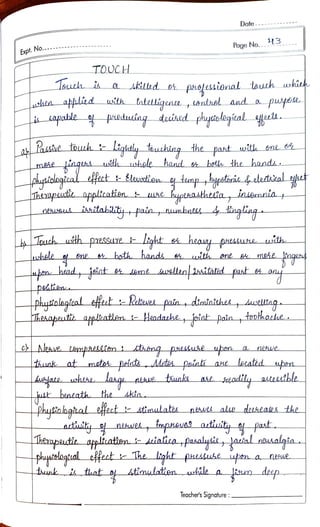 Date
Expt. No.
Page No. 43
TOUCH
Touch is a skilled or professional touch which
when applied with intelligence, control and a purpose
is capable of producing desired physiological effects.
a) Passive touch :- Lightly touching the part with one or
more fingers with whole hand or both the hands.
physiological effect :- Elevation of temp, hypotonic & electrical effect
Therapeutic application :- cure hyperasthesia, insomnia,
nervous irritability, pain, numbness & tingling.
b) Touch with pressure :- light or heavy pressure with
whole of one or both hands or with one or more fingers
upon head, joint or some swollen/irritated part or any
position.
physiological effect :- Relieves pain, diminishes, swelling.
Therapeutic application :- Headache, joint pain, toothache.
c) Nerve compression :- strong pressure upon a nerve
trunk at motor points. Motor points are located upon
surface where large nerve trunks are readily accessible
just beneath the skin.
Physiological effect :- stimulates nerves also decreases the
activity of nerves, improves activity of part.
Therapeutic application :- sciatica, paralysis, facial neuralgia.
physiological effect :- The light pressure upon a nerve
trunk is that of stimulation while a firm deep
Teacher's Signature :